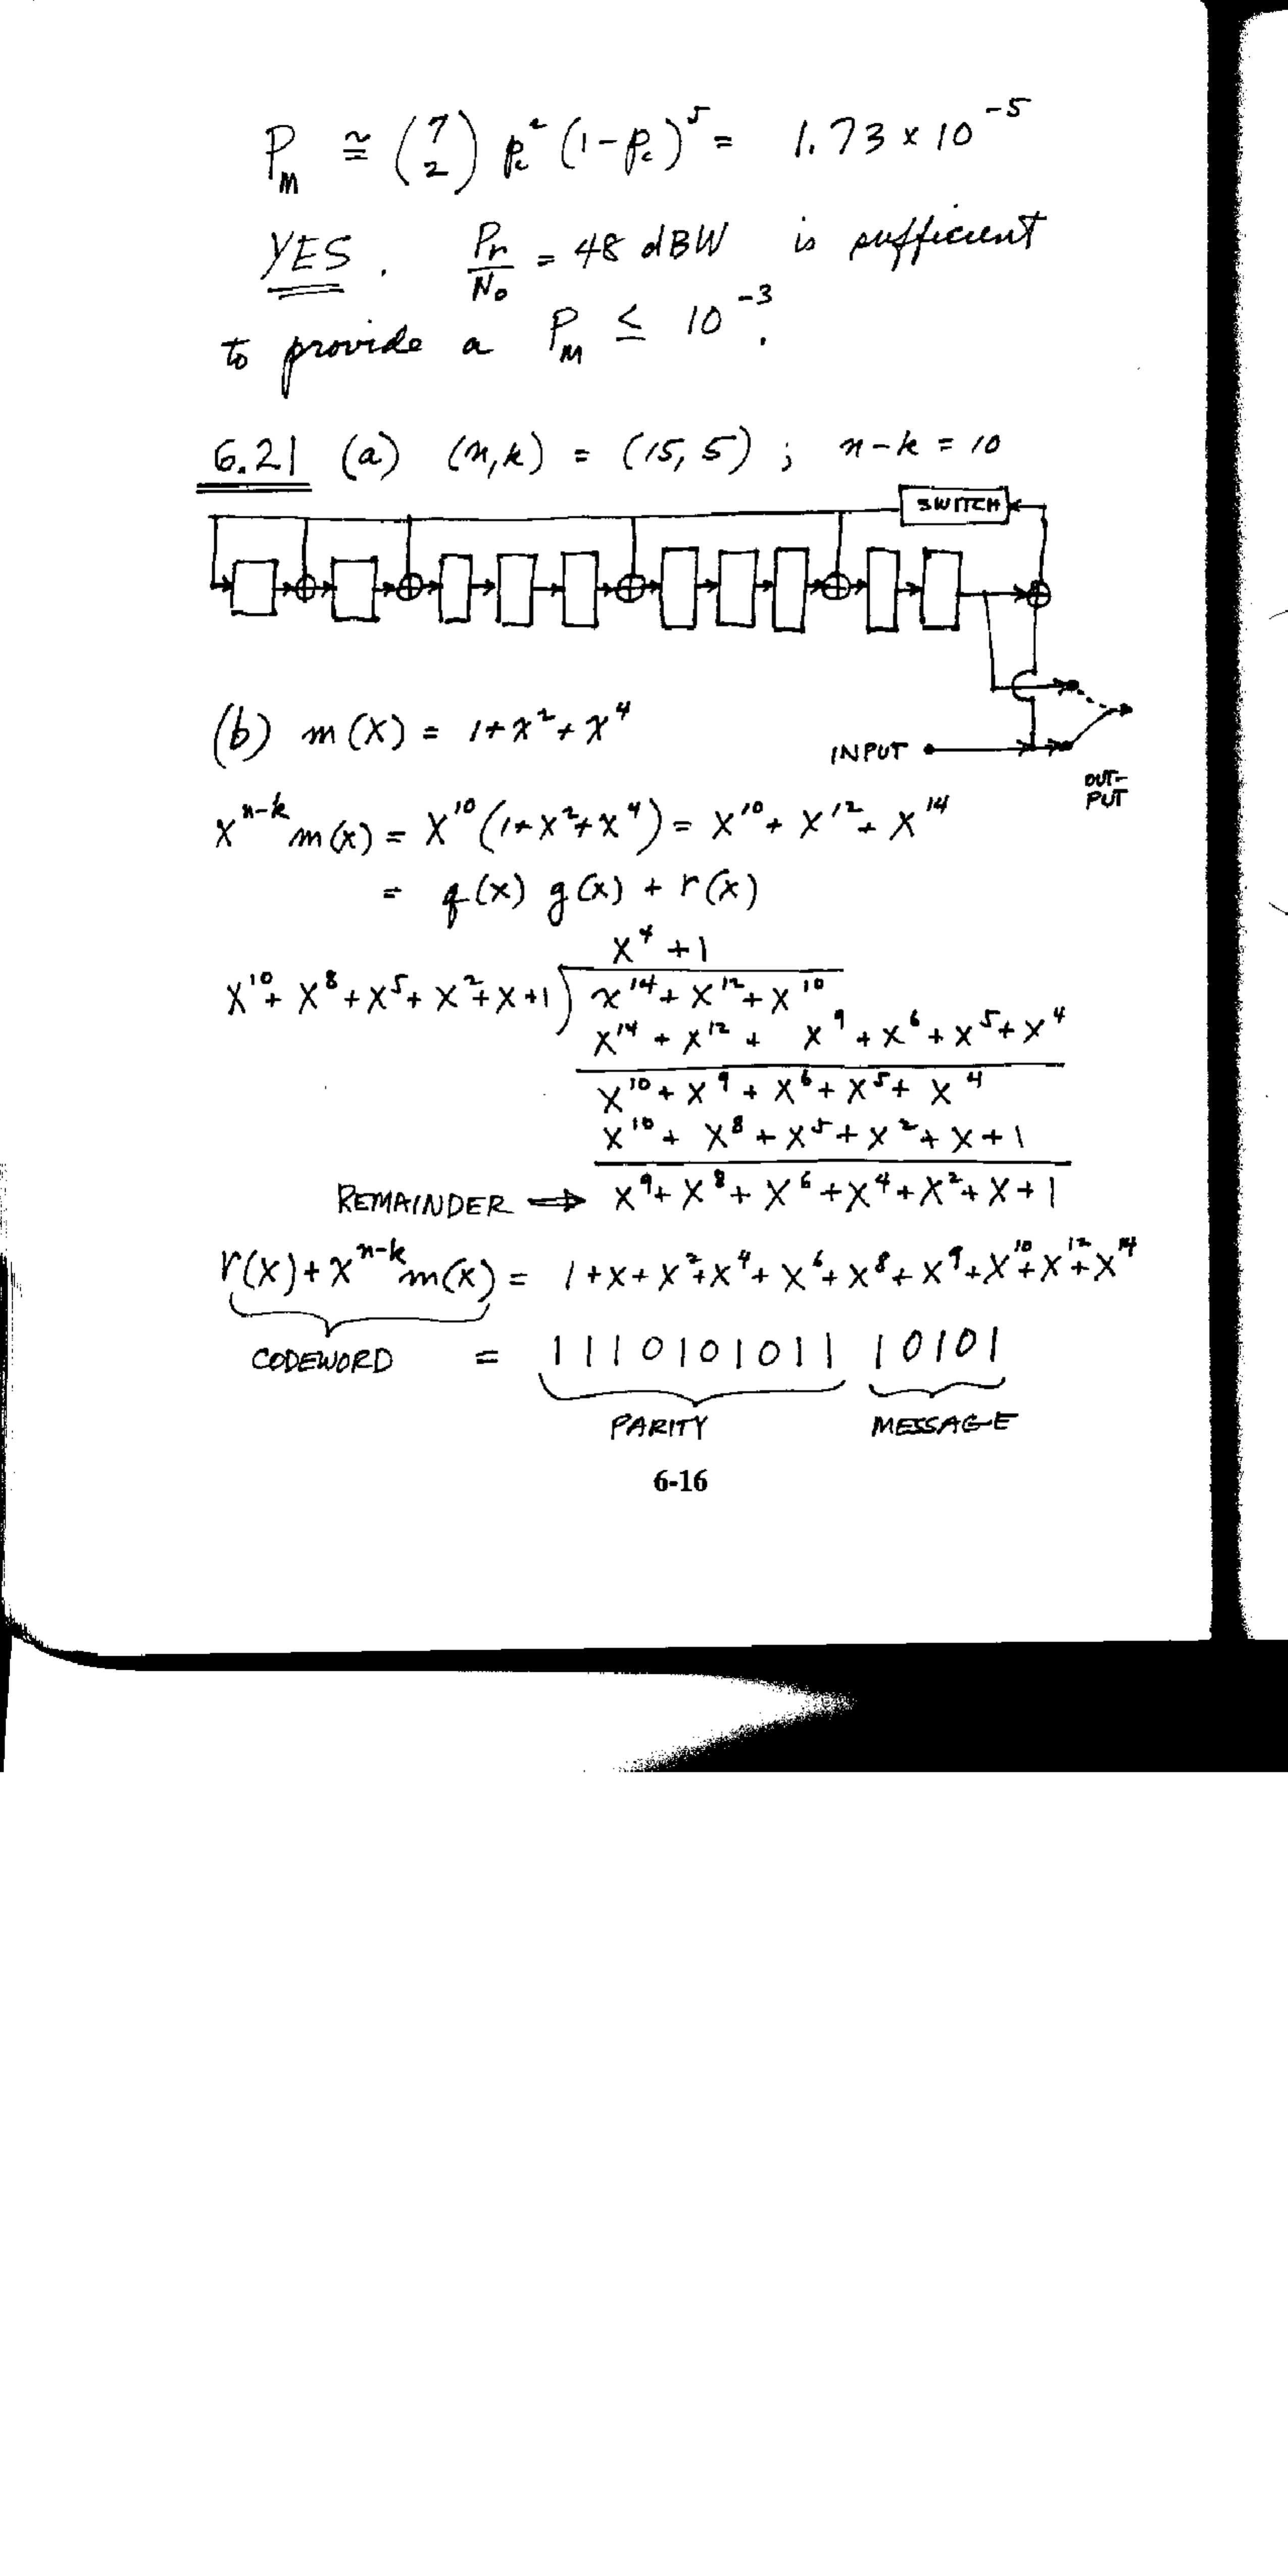 P_M ≅ (7 2) p_c² (1-p_c)⁵ = 1.73 × 10⁻⁵
YES. Pr/N₀ = 48 dBW is sufficient
to provide a P_M ≤ 10⁻³.
6.21 (a) (n,k) = (15,5) ; n-k = 10
SWITCH
(b) m(X) = 1+X²+X⁴
INPUT
OUT-
PUT
Xⁿ⁻ᵏ m(X) = X¹⁰(1+X²+X⁴) = X¹⁰ + X¹² + X¹⁴
= q(X) g(X) + r(X)
X⁴ + 1
X¹⁰ + X⁸ + X⁵ + X² + X + 1 ) X¹⁴ + X¹² + X¹⁰
X¹⁴ + X¹² + X⁹ + X⁶ + X⁵ + X⁴
X¹⁰ + X⁹ + X⁶ + X⁵ + X⁴
X¹⁰ + X⁸ + X⁵ + X² + X + 1
REMAINDER ⇒ X⁹ + X⁸ + X⁶ + X⁴ + X² + X + 1
r(X) + Xⁿ⁻ᵏ m(X) = 1 + X + X² + X⁴ + X⁶ + X⁸ + X⁹ + X¹⁰ + X¹² + X¹⁴
CODEWORD = 1110101011 10101
PARITY MESSAGE
6-16